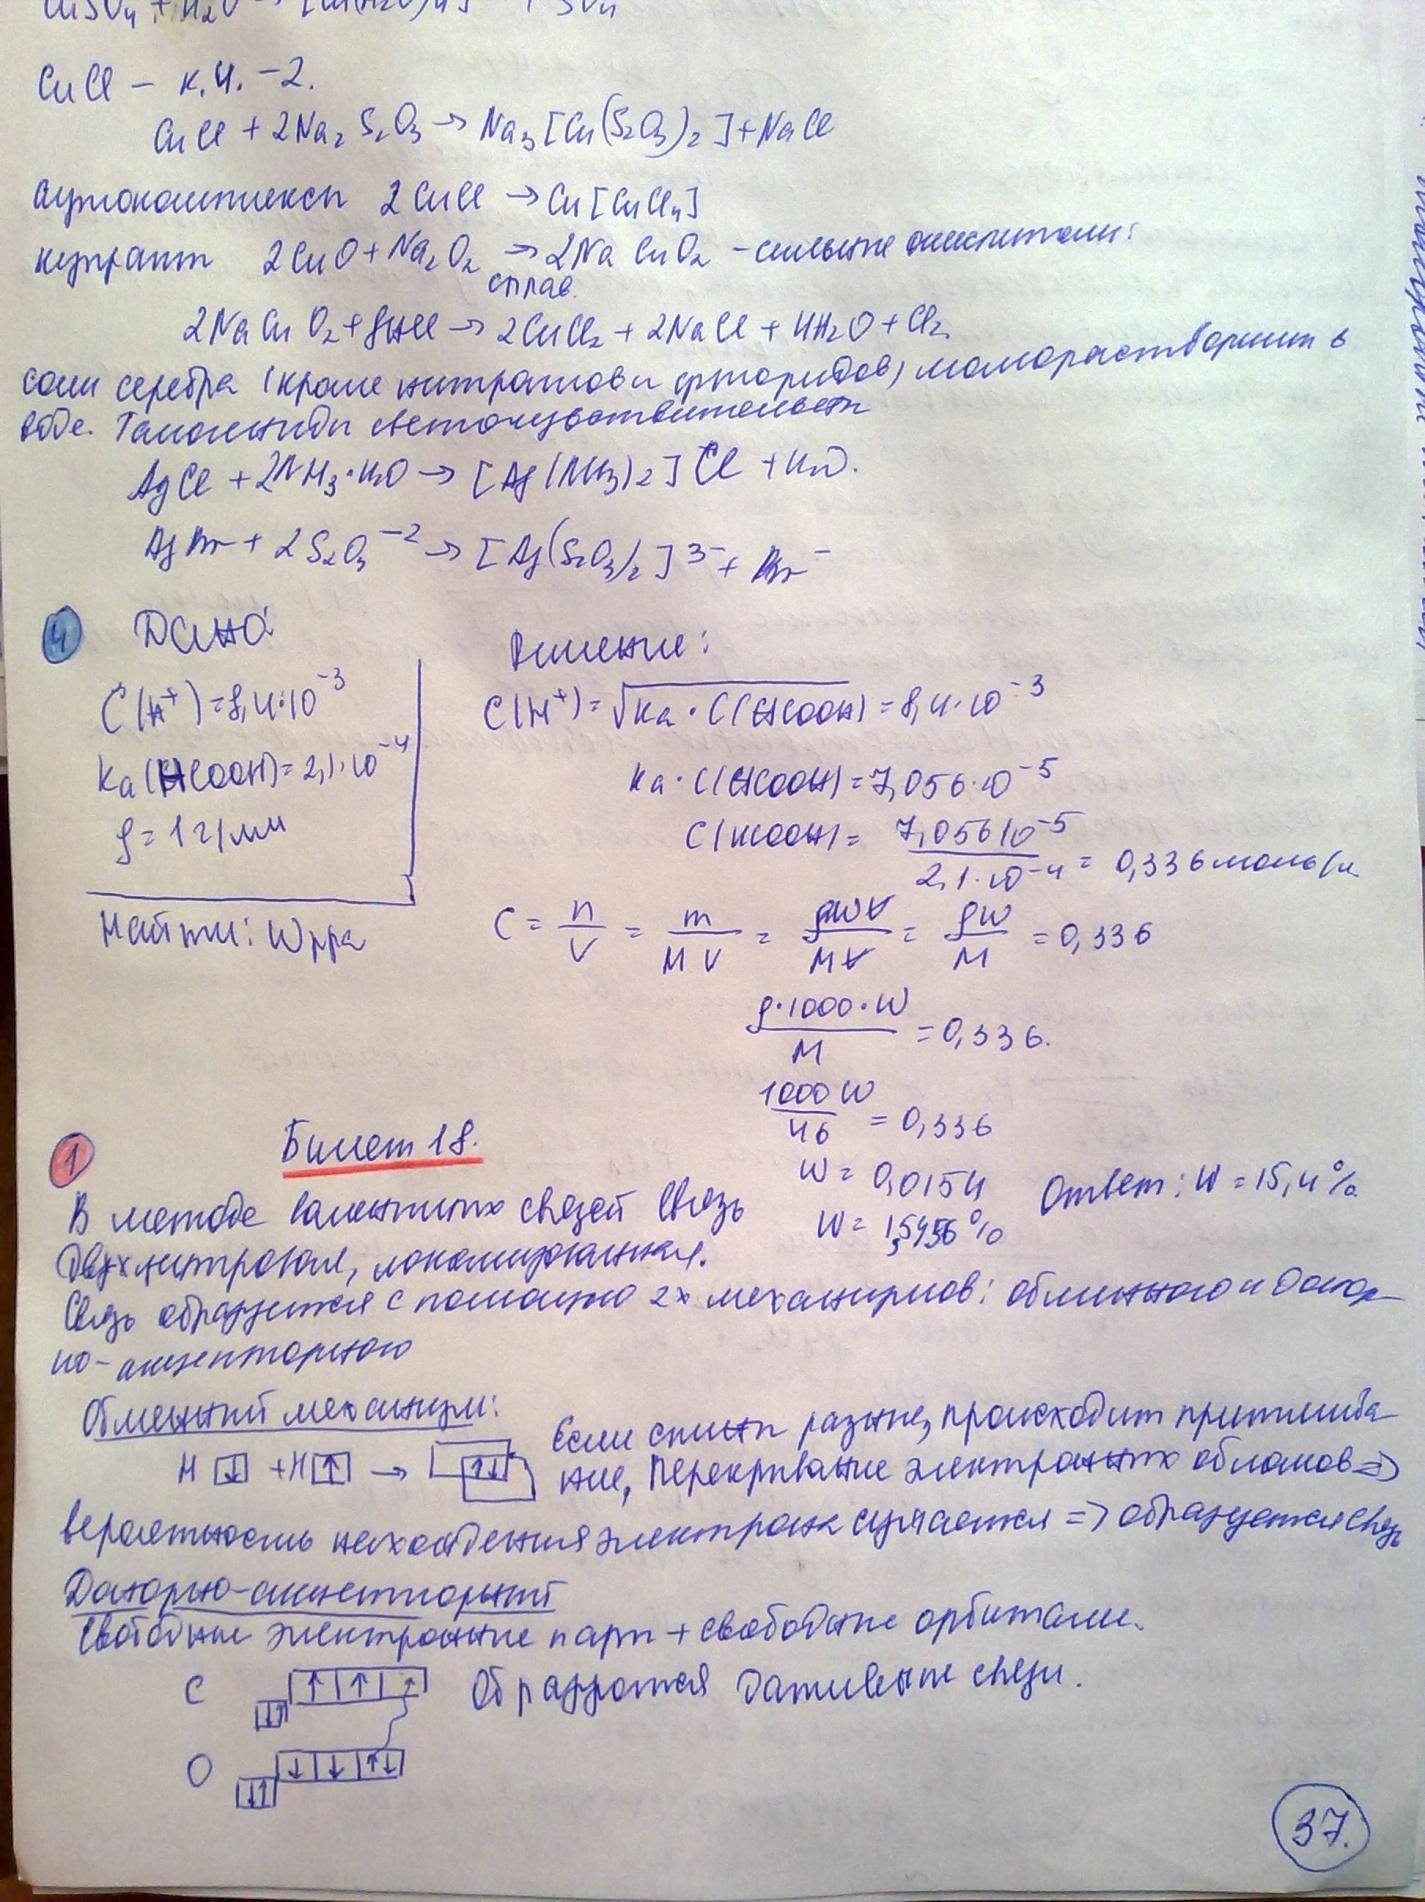 CuSO₄ + H₂O → [Cu(H₂O)₄] + SO₄
CuCl – к.ч. – 2.
CuCl + 2Na₂S₂O₃ → Na₃[Cu(S₂O₃)₂] + NaCl
аутокомплексы 2CuCl → Cu[CuCl₄]
купраты 2CuO + Na₂O₂ → 2NaCuO₂ – сильные окислители:
сплав.
2NaCuO₂ + 8HCl → 2CuCl₂ + 2NaCl + 4H₂O + Cl₂
соли серебра (кроме нитратов и фторидов) малорастворимы в
воде. Галогениды светочувствительны
AgCl + 2NH₃·H₂O → [Ag(NH₃)₂]Cl + H₂O.
AgBr + 2S₂O₃⁻² → [Ag(S₂O₃)₂]³⁻ + Br⁻
4 Дано: Решение:
C(H⁺) = 8,4·10⁻³ C(H⁺) = √Ka·C(HCOOH) = 8,4·10⁻³
Ka(HCOOH) = 2,1·10⁻⁴ Ka·C(HCOOH) = 7,056·10⁻⁵
ρ = 1 г/мл C(HCOOH) = 7,056 10⁻⁵ / 2,1·10⁻⁴ = 0,336 моль/л
Найти: W р-ра C = n/V = m/MV = ρWV/MV = ρW/M = 0,336
ρ·1000·W/M = 0,336.
1000W/46 = 0,336
W = 0,0154 Ответ: W = 15,4%
W = 1,5456%
1 Билет 18.
В методе валентных связей связь
двухцентровая, локализованная.
Связь образуется с помощью 2х механизмов: обменного и донор-
но-акцепторного
Обменный механизм:
H [↓] + H [↑] → [↑↓] Если спины разные, происходит притягива-
ние, перекрывание электронных облаков =>
вероятность нахождения электрона сгущается => образуется связь
Донорно-акцепторный
Свободные электронные пары + свободные орбитали.
C [↓↑] [↑|↑|↑] Образуются дативные связи.
O [↓↑] [↓|↓|↑↓]
37.